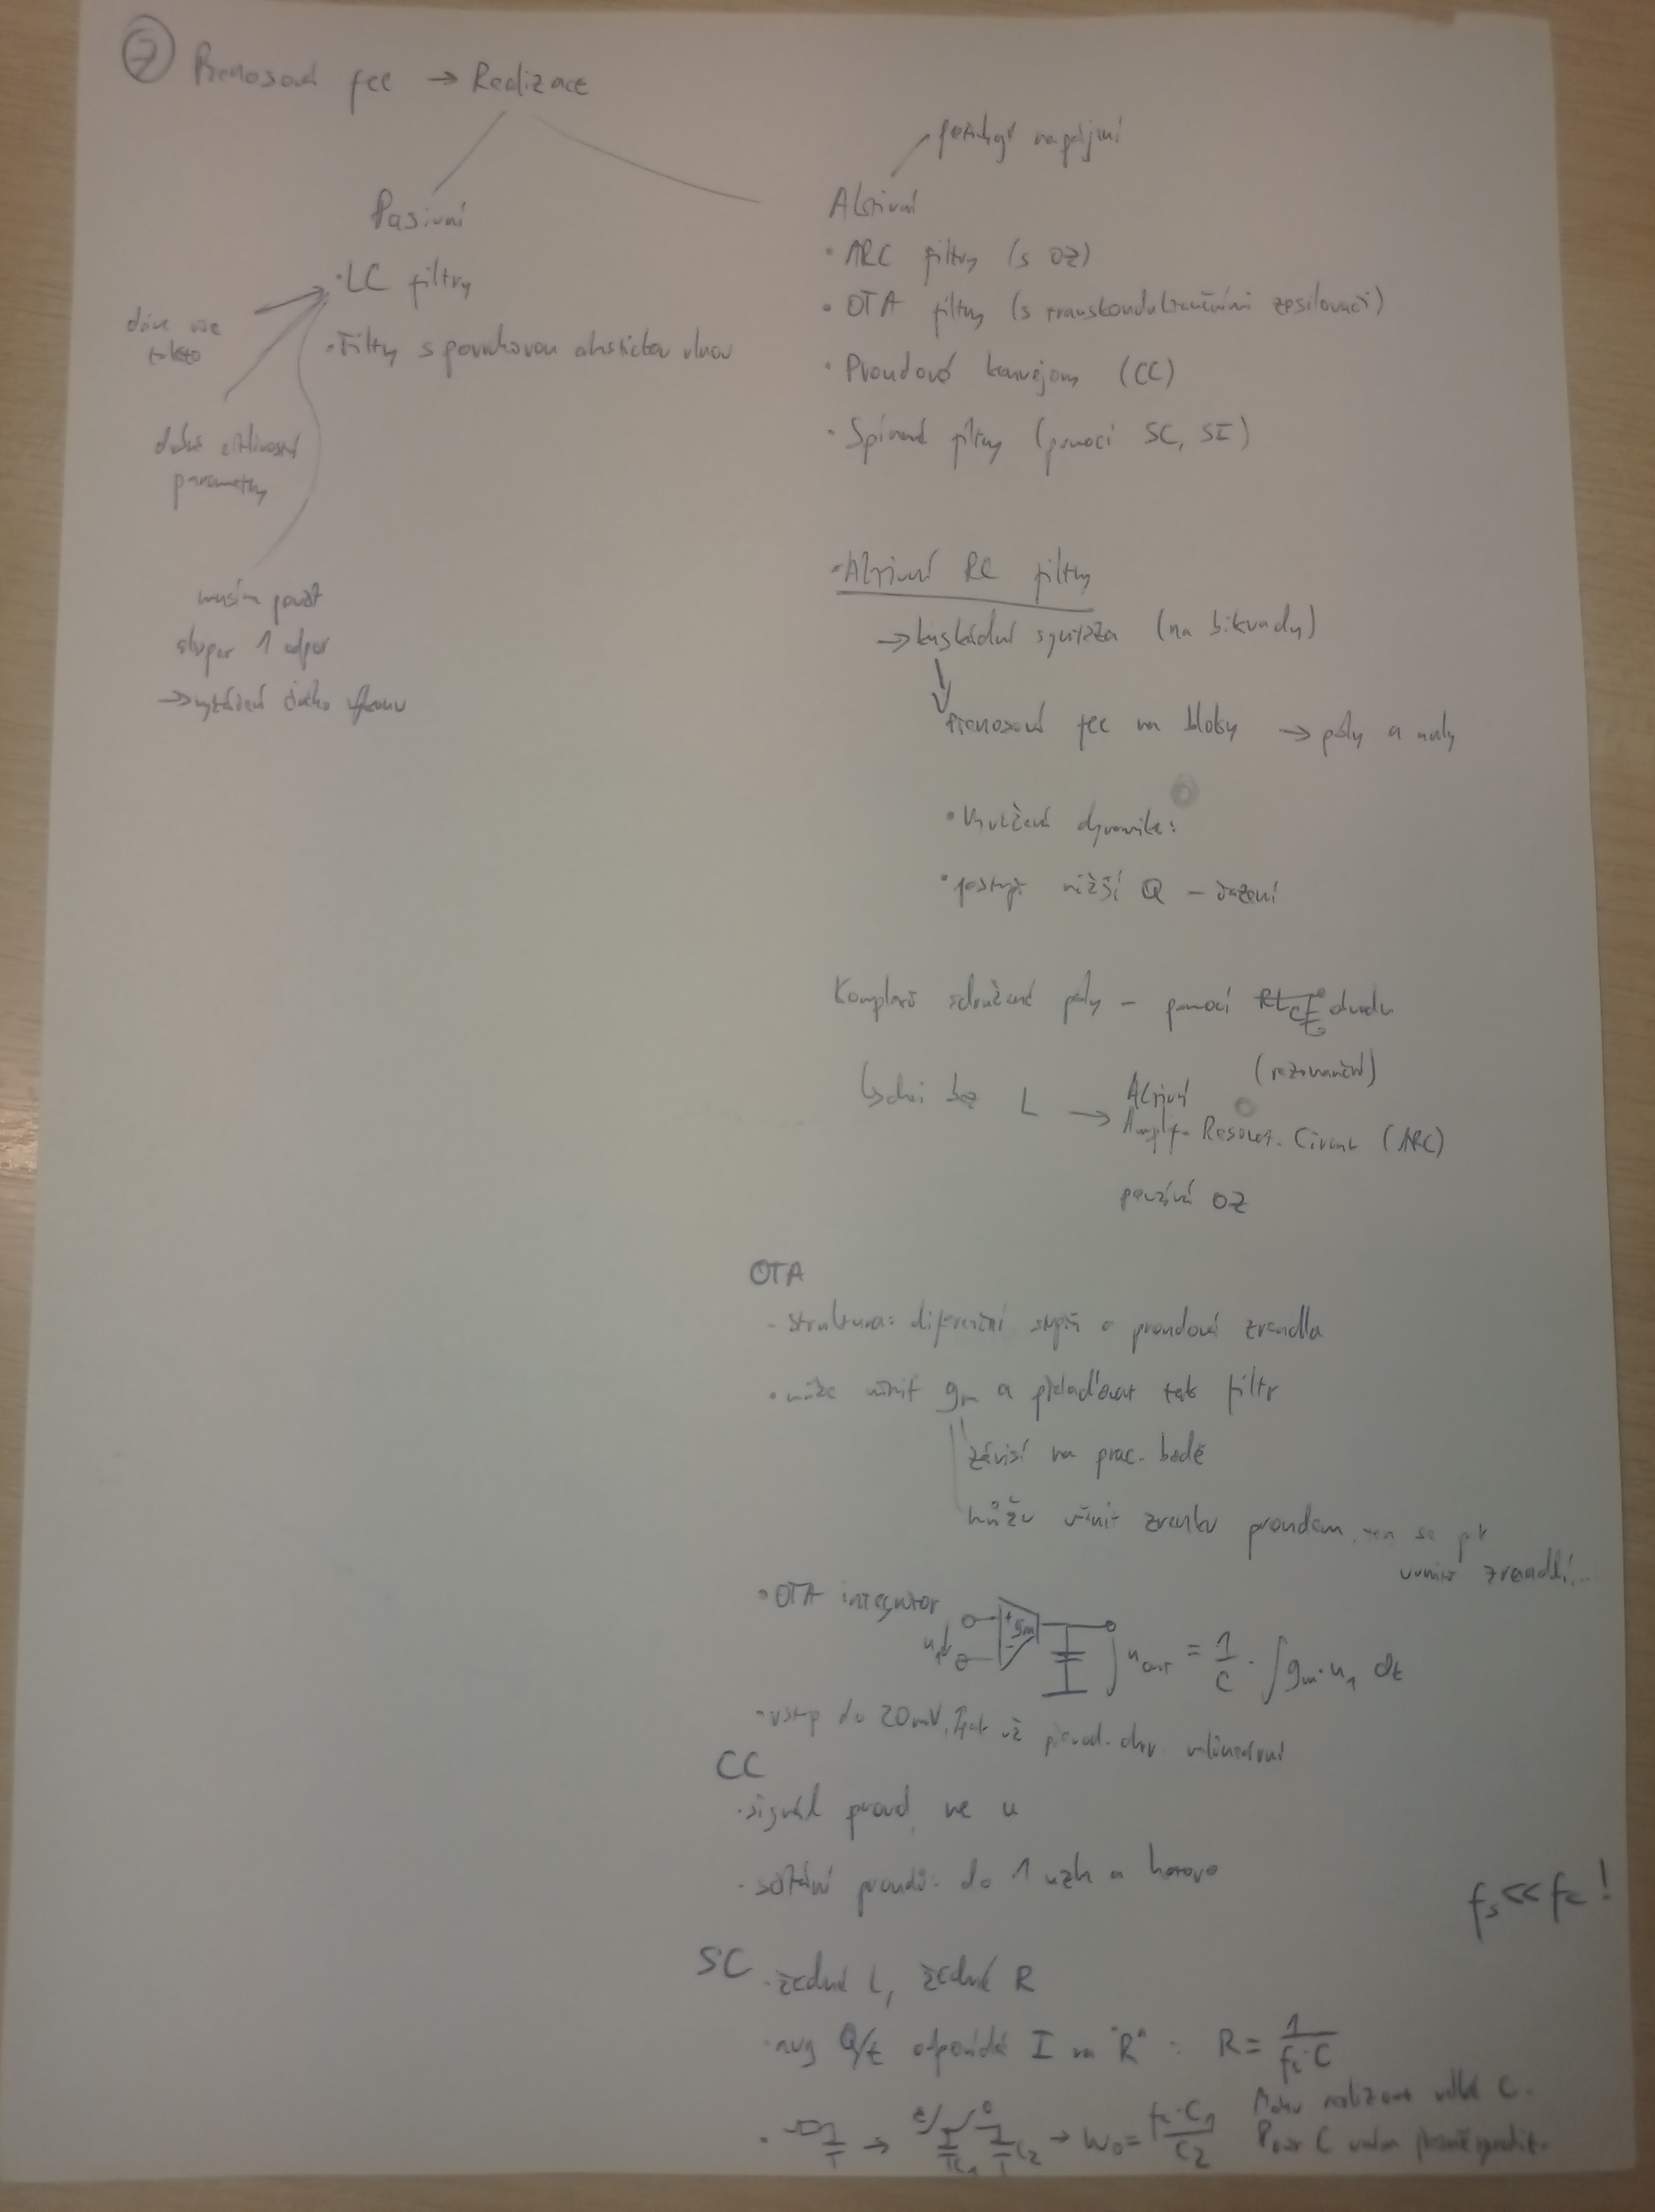 7 Přenosová fce → Realizace
Pasivní
• LC filtry
• Filtry s povrchovou akustickou vlnou
dříve vše
takto
dobré citlivostní
parametry
musím použít
alespoň 1 odpor
potřebují napájení
Aktivní
• ARC filtry (s OZ)
• OTA filtry (s transkonduktančními zesilovači)
• Proudové konvejory (CC)
• Spínané filtry (pomocí SC, SI)
• Aktivní RC filtry
→ kaskádní syntéza (na bikvady)
Přenosová fce na bloky → póly a nuly
• Vyvážená dynamika:
• nižší Q – řazení
Komplexně sdružené póly – pomocí obvodu
(rezonanční)
bez L → Aktivní
Amplif. Resonat. Circuit (ARC)
používá OZ
OTA
- struktura: diferenční stupeň a proudová zrcadla
• může měnit gm a přelaďovat tak filtr
závisí na prac. bodě
můžu měnit zvenku proudem, ten se pak
uvnitř zrcadlí...
• OTA integrátor
u1 + gm - uout = 1/C · ∫ gm · u1 dt
• vstup do 20mV, pak už převod. char. nelineární
CC
• signál proud, ne u
• sčítání proudů: do 1 uzlu a hotovo
fs << fc !
SC • žádné L, žádné R
• avg Q/t odpovídá I na "R" : R = 1/(fc·C)
• → C1 C2 → ω0 = fc·C1/C2
Mohu realizovat velké C.
Poměr C umím přesně vyrobit.